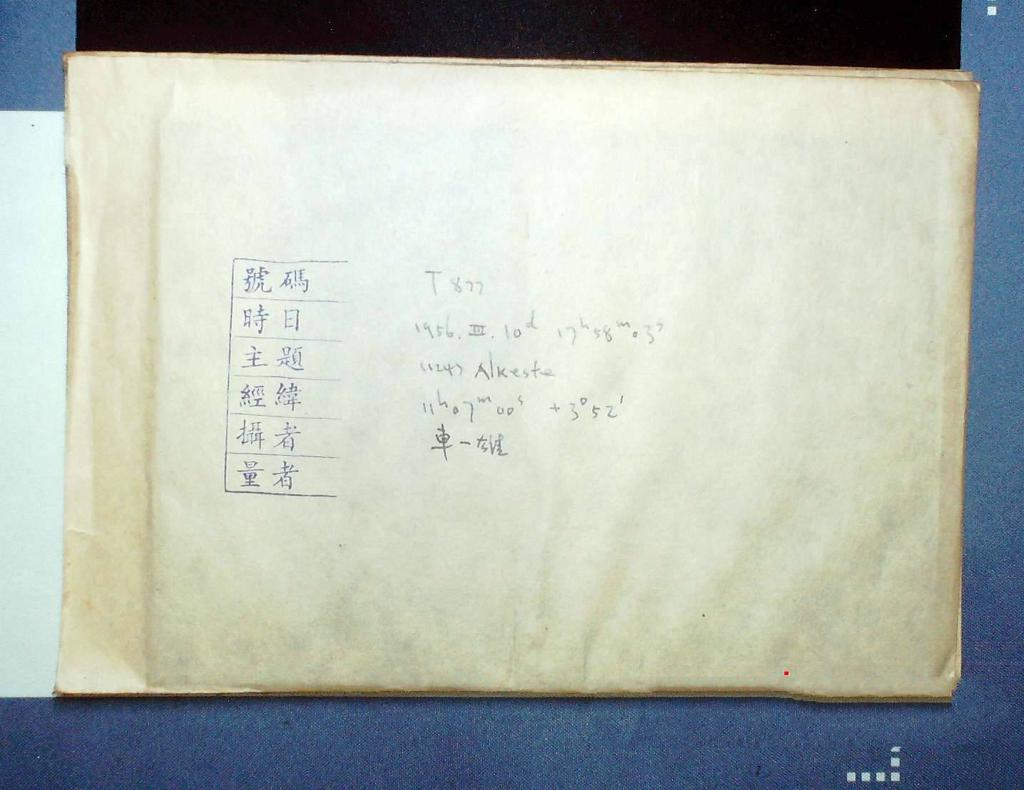 號碼 T 877
時日 1956. III. 10ᵈ 17ʰ58ᵐ03ˢ
主題 (124) Alkeste
經緯 11ʰ07ᵐ00ˢ +3°52'
攝者 車一雄
量者